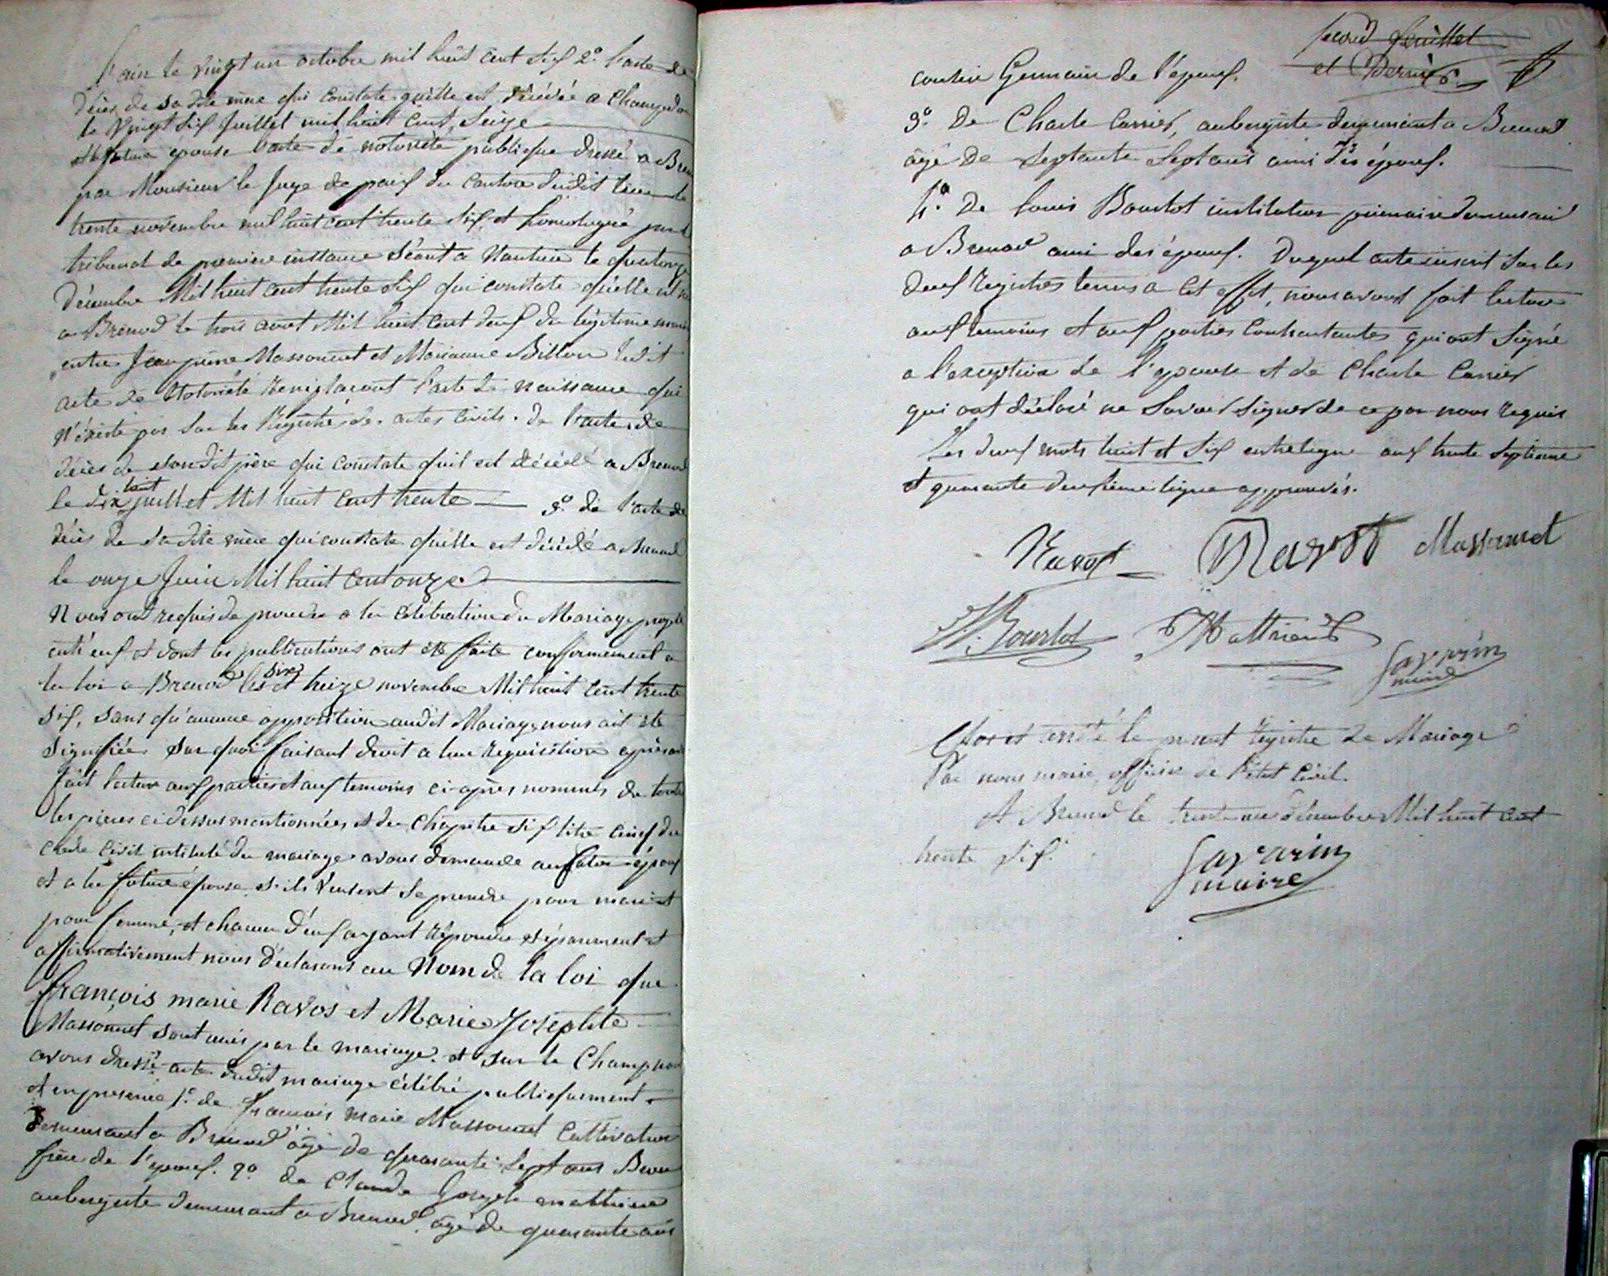 l'ain le vingt un octobre mil huit cent six 2.° l'acte de
décès de sa dite mère qui constate qu'elle est décédée a Champdor
le vingt six juillet mil huit cent seize
et la future epouse l'acte de notoriété publique dressé a Bren
par Monsieur le juge de paix du canton dudit lieu le
trente novembre mil huit cent trente six, et homologué par le
tribunal de première instance séant a Nantua le quatorze
Décembre Mil huit cent trente six qui constate qu'elle est née
a Brenod le trois aout Mil huit cent deux du légitime mariage
entre Jean pierre Massonnet et Marianne Billon ledit
acte de Notoriété remplacant l'acte de naissance qui
n'existe pas sur les Registres des actes civils. de l'acte de
décès de son dit père qui constate qu'il est décédé a Brenod
huit
le dix juillet Mil huit cent trente 3.° de l'acte de
décès de sa dite mère qui constate qu'elle est décédé a Brenod
le onze Juin Mil huit cent onze
Nous ont requis de procéder a la célébration du Mariage projeté
entr'eux et dont les publications ont été faite conformement a
six
la loi a Brenod les et treize novembre Mil huit cent trente
six, sans qu'aucune opposition audit Mariage nous ait été
signifiée sur quoi faisant droit a leur requisition après avoir
fait lecture aux parties et aux temoins ci-après nommés de toutes
les pièces ci dessus mentionnées et du chapitre six titre cinq du
code civil intitulé du mariage avons demande au futur époux
et a la future épouse s'ils veulent se prendre pour mari et
pour femme, et chacun d'eux ayant répondu séparement et
affirmativement nous déclarons au Nom de la loi que
françois marie Ravos et Marie Josephte
Massonnet sont unis par le mariage. et sur le Champ nous
avons dressé acte dudit mariage célébré publiquement
et en presence 1.° de francois marie Massonnet Cultivateur
Demeurant a Brenod âgé de quarante sept ans Beau
frère de l'epoux. 2.° de Claude Joseph matthieu
aubergiste demeurant a Brenod âgé de quarante ans
second feuillet
et Dernier
cousin Germain de l'époux.
3.° De Charle Carrier, aubergiste demeurant a Brenod
âgé de septante sept ans ami des époux.
4.° De louis Bourlot instituteur primaire demeurant
a Brenod ami des époux. Duquel acte inscrit sur les
deux registres tenus a cet effet, nous avons fait lecture
aux temoins et aux parties contractantes qui ont signé
a l'exception de l'epouse et de Charle Carrier
qui ont déclaré ne savoir signer de ce par nous requis
Les deux mots huit et six entreligne aux trente septieme
et quarante deuxième ligne approuvés.
Ravot Ravost Massonnet
L. Bourlot Matthieu
Savarin
maire
Clos et arrêté le présent registre de Mariage
Par nous maire, officier de l'état Civil.
A Brenod le trente un décembre Mil huit cent
trente six.
Savarin
maire